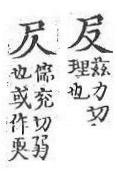 茲力切
理也
儒兖切弱
也或作耎